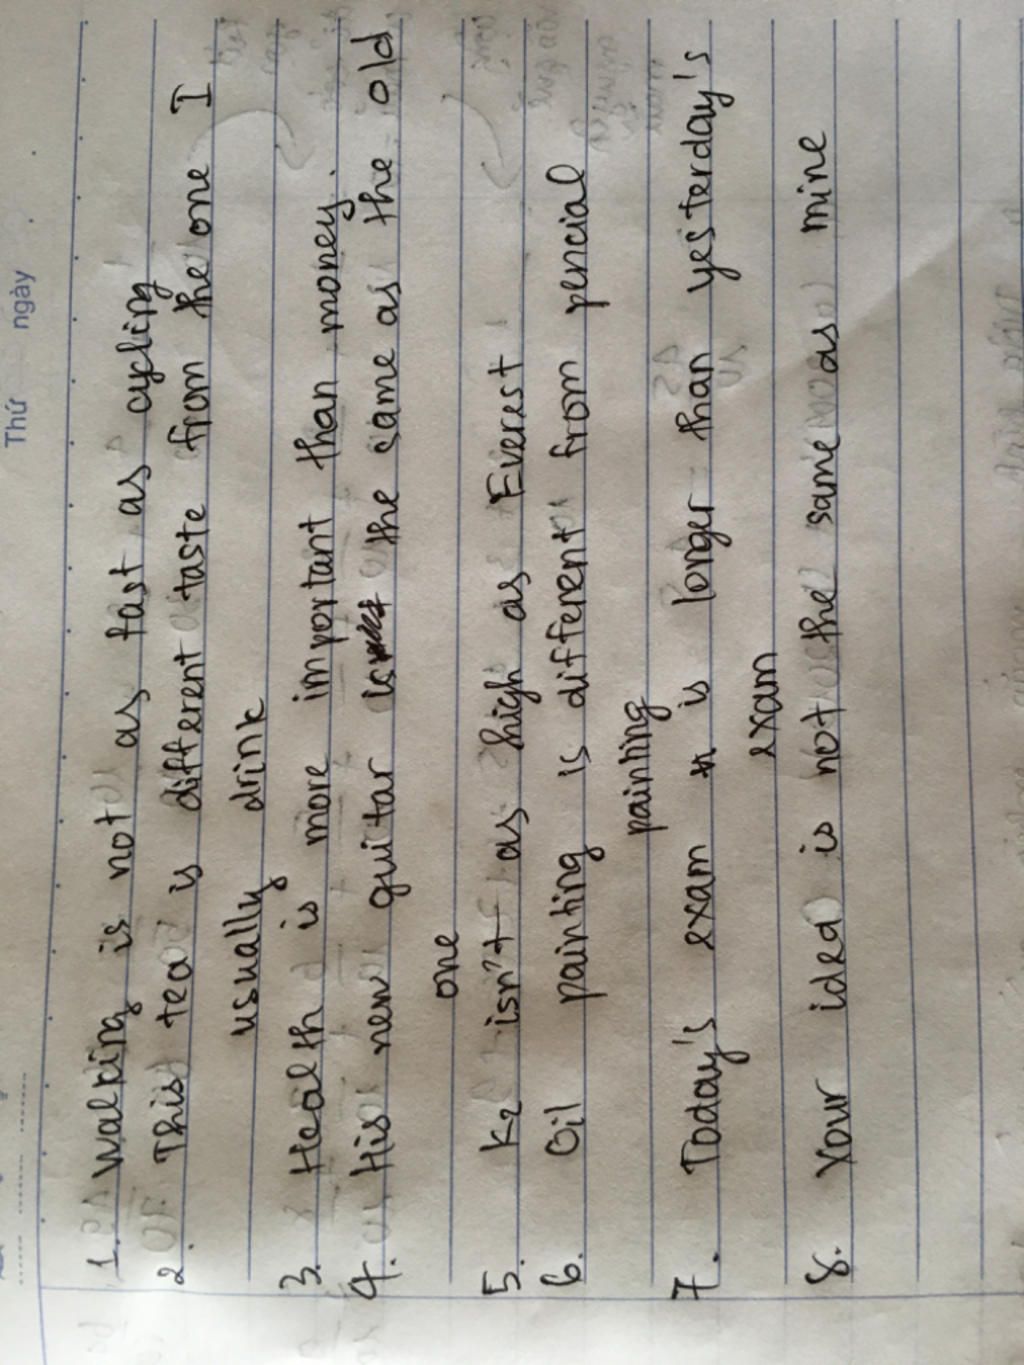 Thứ ngày
1. Walking is not as fast as cycling
2. This tea is different taste from the one I
usually drink
3. Health is more important than money.
4. His new guitar is the same as the old
one
5. K2 isn't as high as Everest
6. Oil painting is different from pencial
painting
7. Today's exam is longer than yesterday's
exam
8. Your idea is not the same as mine